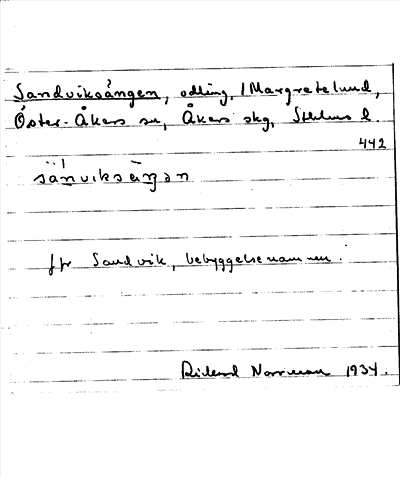 Sandviksängen, odling, / Margretelund,
Öster-Åkers sn, Åkers skg, Sthlms l.
442
sänviksäŋən
jfr Sandvik, bebyggelsenamnen.
Rickard Norrman 1934.